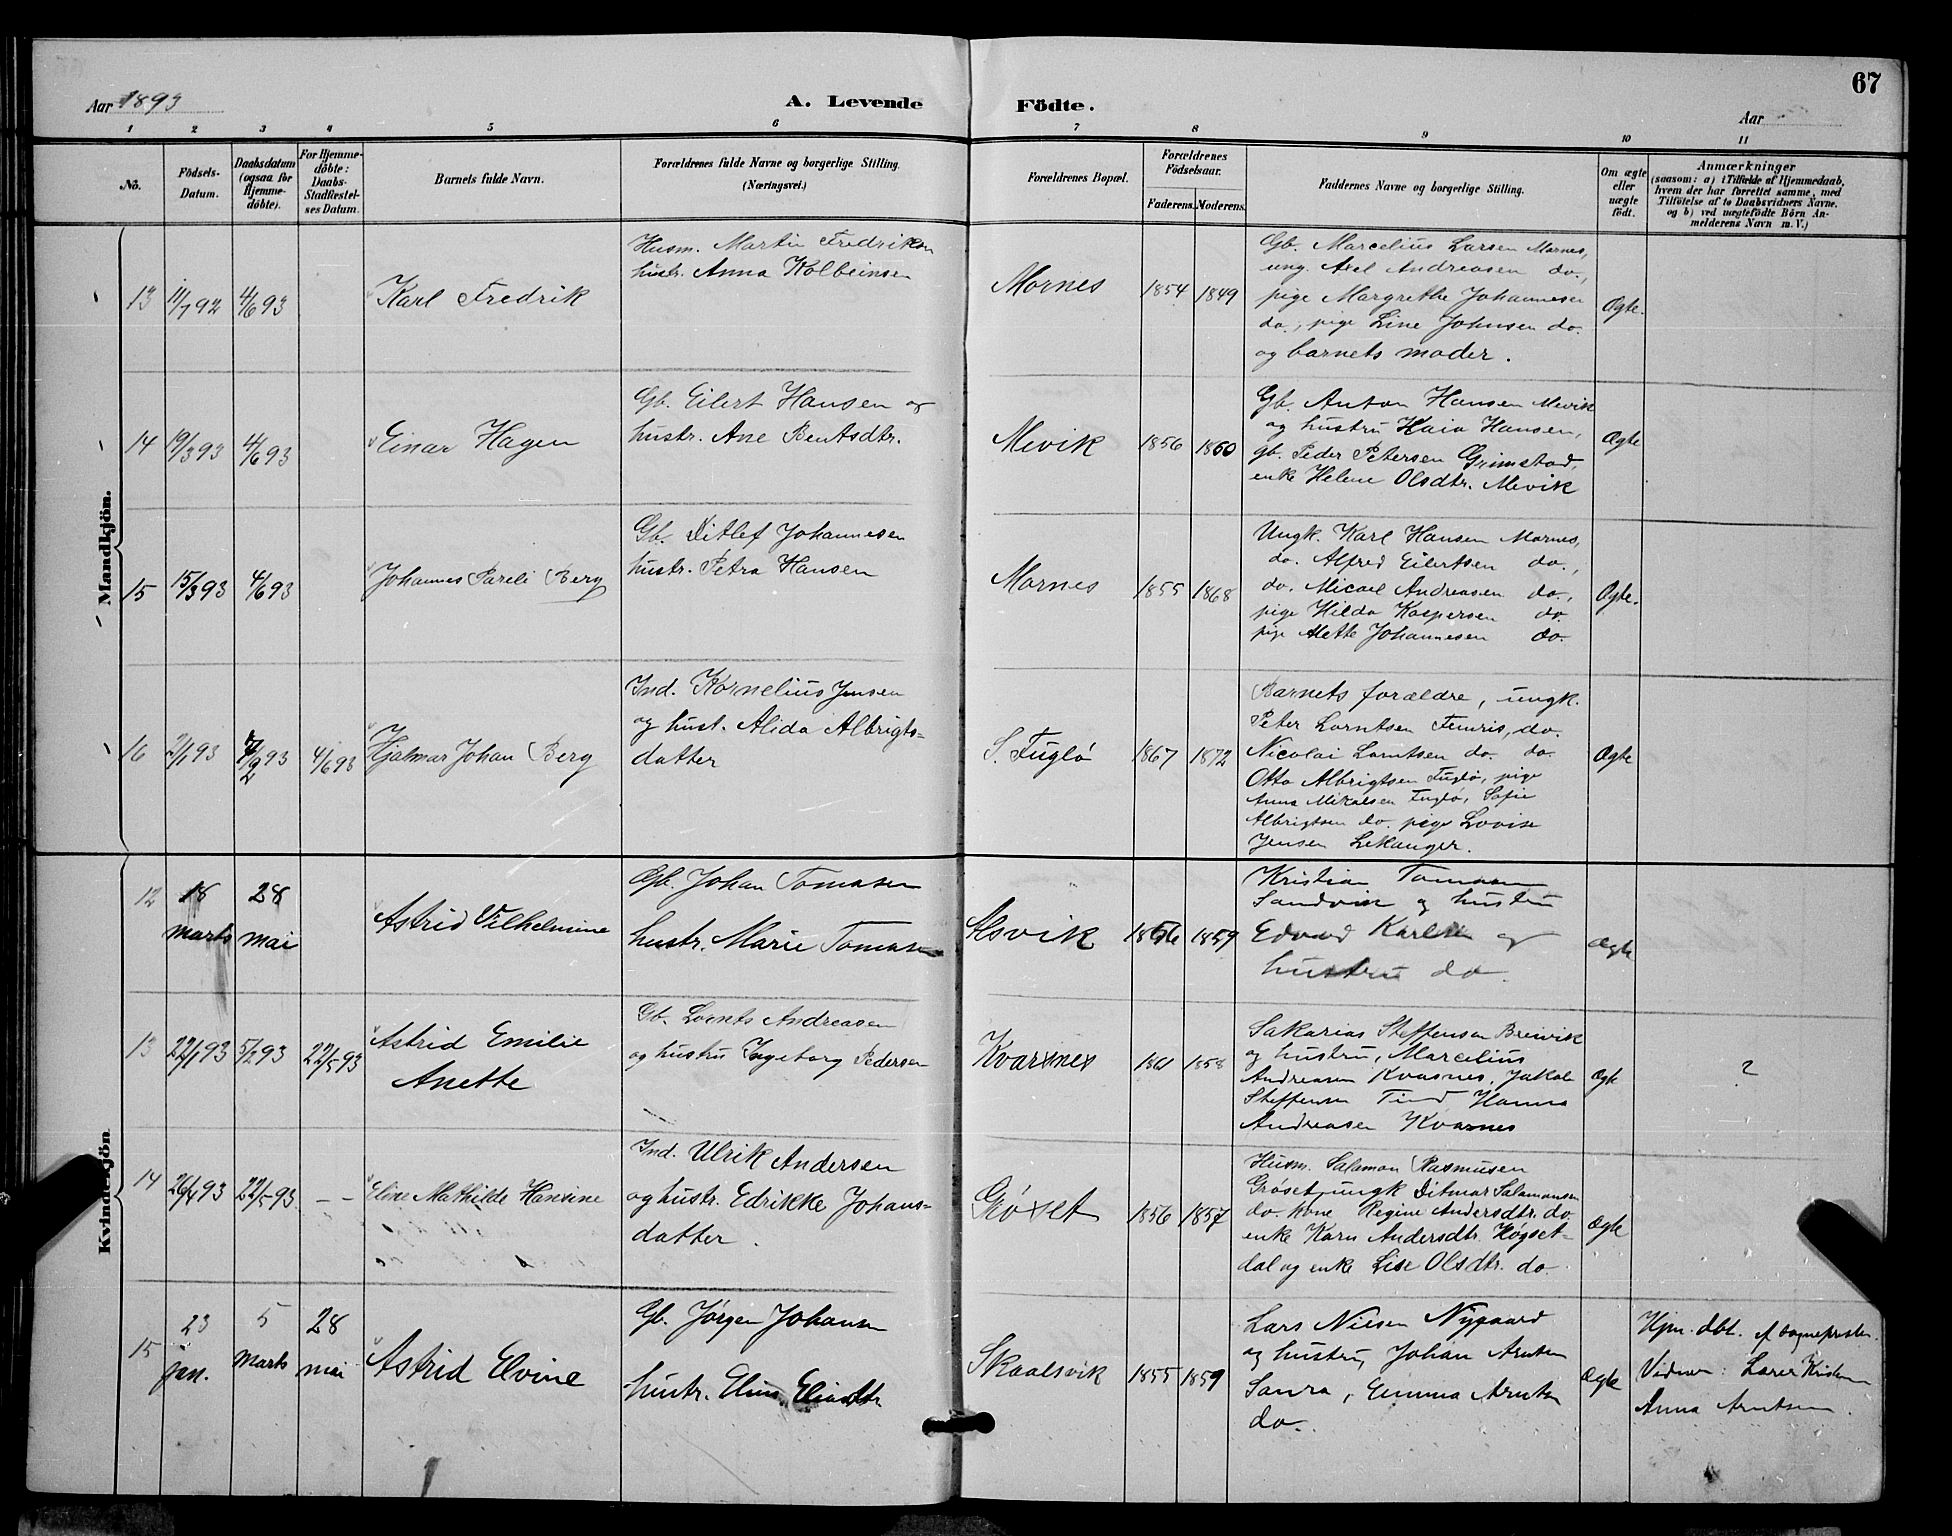 67
Aar 1893
A. Levende Födte.
Aar
1 2 3 4 5 6 7 8 9 10 11
No.
Födsels-
Datum.
Daabsdatum
(ogsaa for
Hjemme-
döbte).
For Hjemme-
döbte:
Daabs-
Stadfestel-
ses Datum.
Barnets fulde Navn.
Forældrenes fulde Navne og borgerlige Stilling.
(Næringsvei.)
Forældrenes Bopæl.
Forældrenes
Födselsaar.
Faderens. Moderens.
Faddernes Navne og borgerlige Stilling.
Om ægte
eller
uægte
födt.
Anmærkninger
(saasom: a) i Tilfælde af Hjemmedaab,
hvem der har forrettet samme, med
Tilföielse af to Daabsvidners Navne,
og b) ved uægtefödte Börn An-
melderens Navn m. V.)
Mandkjön.
13
11/7 92
4/6 93
Karl Fredrik
Husm. Martin Fredriksen
hustr. Anna Kolbeinsen
Mornes
1854
1849
Gb. Marcelius Larsen Mornes,
ung. Axel Andreasen do.,
pige Margrethe Johannesen
do., pige Line Johnsen do.
og barnets moder.
Ægte.
14
19/3 93
4/6 93
Einar Hagen
Gb. Eilert Hansen og
hustr. Ane Bentsdtr.
Mevik
1856
1860
Gb. Anton Hansen Mevik
og hustru Haia Hansen,
gb. Peder Petersen Grimstad,
enke Helene Olsdtr. Mevik
Ægte
15
15/3 93
4/6 93
Johannes Pareli Berg
Gb. Ditlef Johannesen
hustr. Petra Hansen
Mornes
1855
1868
Ungk. Karl Hansen Mornes,
do. Alfred Eilertsen do.,
do. Micael Andreasen do.,
pige Hilda Kaspersen do.
pige Mette Johannesen do.
Ægte.
16
2/1 93
9/2 93
4/6 93
Hjalmar Johan Berg
Ind. Kornelius Jensen
og hust. Alida Albrigts-
datter
S. Fuglø
1867
1872
Barnets forældre, ungk.
Peter Lorntsen Femris, do.
Nicolai Lorntsen do. do.
Otto Albrigtsen Fuglø, pige
Anna Mikalsen Fuglø, Sofie
Albrigtsen do. pige Lovise
Jensen Lekanger.
Ægte
Kvindekjön
12
18
marts
28
mai
Astrid Vilhelmine
Gb. Johan Tomasen
hustr. Marie Tomasen
Alsvik
1856
1859
Kristian Tomasen
Sandvik og hustru
Edvard Karlsen og
hustru do.
Ægte
13
22/1 93
5/2 93
22/5 93
Astrid Emilie
Anette
Gb. Lornts Andreasen
og hustru Ingeborg Pedersen
Kvarsnes
1861
1858
Sakarias Steffensen Breivik
og hustru, Marcelius
Andreasen Kvasnes, Jakob
Steffensen Tind Hanna
Andreasen Kvarnes
Ægte
?
14
26/4 93
22/5 93
- -
Eline Mathilde Hansine
Ind. Ulrik Andersen
og hustr. Edrikke Johans-
datter.
Grøset
1856
1857
Husm. Salamon Rasmusen
Grøset, ungk Ditmar Salamonsen
do. kone Regine Andersdtr. do.
enke Karn Andersdtr. Høgset-
dal og enke Lise Olsdtr. do.
Ægte
15
23
jan.
5
marts
28
mai
Astrid Elvine
Gb. Jørgen Johansen
hustr. Elina
Skaalsvik
1855
1859
Lars Nilsen Nygaard
og hustru, Johan Arntsen
Saura, Emma Arntsen
do.
Ægte
Hjm. dbt. af sognepresten.
Vidner: Lærer Kristensen
Anna Arntsen.